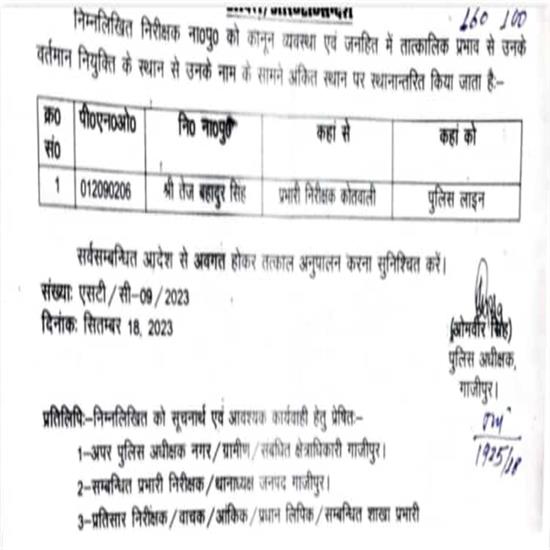 160 100
निम्नलिखित निरीक्षक ना०पु० को कानून व्यवस्था एवं जनहित में तात्कालिक प्रभाव से उनके
वर्तमान नियुक्ति के स्थान से उनके नाम के सामने अंकित स्थान पर स्थानान्तरित किया जाता हैः-
क्र० सं० पी०एन०ओ० नि० ना०पु० कहां से कहां को
1 012090206 श्री तेज बहादुर सिंह प्रभारी निरीक्षक कोतवाली पुलिस लाइन
सर्वसम्बन्धित आदेश से अवगत होकर तत्काल अनुपालन करना सुनिश्चित करें।
संख्याः एसटी/सी-09/2023
दिनांकः सितम्बर 18, 2023
(ओमवीर सिंह)
पुलिस अधीक्षक,
गाजीपुर।
प्रतिलिपिः-निम्नलिखित को सूचनार्थ एवं आवश्यक कार्यवाही हेतु प्रेषितः-
1-अपर पुलिस अधीक्षक नगर/ग्रामीण/संबंधित क्षेत्राधिकारी गाजीपुर।
2-सम्बन्धित प्रभारी निरीक्षक/थानाध्यक्ष जनपद गाजीपुर।
3-प्रतिसार निरीक्षक/वाचक/आंकिक/प्रधान लिपिक/सम्बन्धित शाखा प्रभारी
1925/18